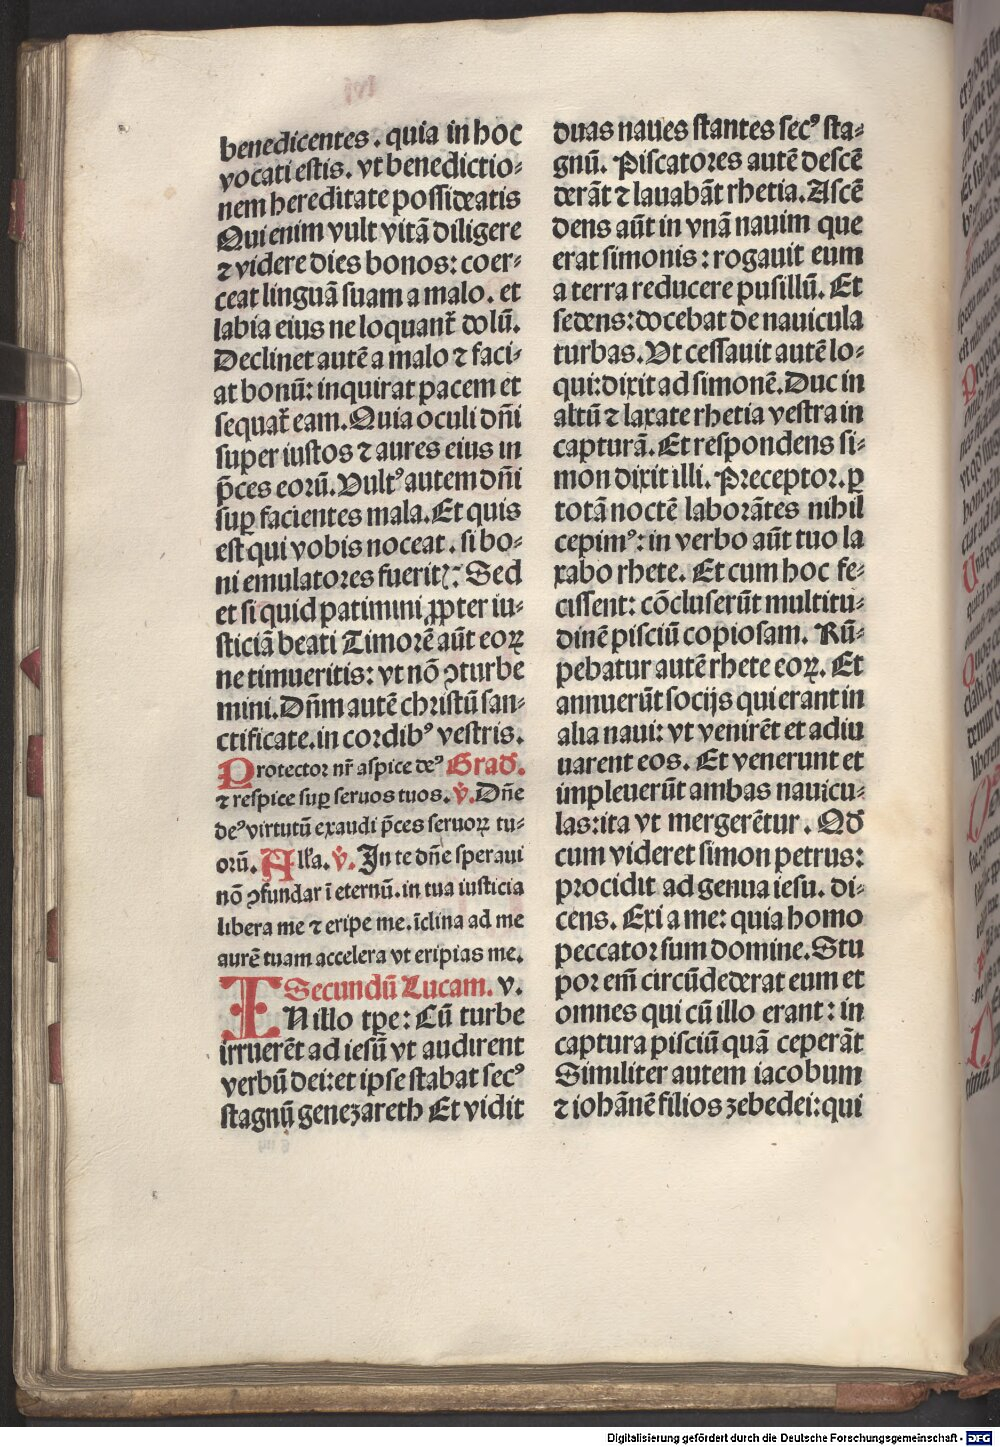 benedicentes. quia in hoc
vocati estis. vt benedictio-
nem hereditate possideatis
Qui enim vult vitā diligere
⁊ videre dies bonos: coer-
ceat linguā suam a malo. et
labia eius ne loquant᷑ dolū.
Declinet autē a malo ⁊ faci-
at bonū: inquirat pacem et
sequat᷑ eam. Quia oculi dn̄i
super iustos ⁊ aures eius in
p̄ces eorū. Vultꝰ autem dn̄i
sup̱ facientes mala. Et quis
est qui vobis noceat. si bo-
ni emulatores fuerit⁊: Sed
et si quid patimini ꝓpter iu-
sticiā beati Timorē aūt eoꝝ
ne timueritis: vt nō ꝯturbe
mini. Dn̄m autē christū san-
ctificate. in cordibꝰ vestris.
Protector nr̄ aspice deꝰ Grad̄.
⁊ respice sup̱ seruos tuos. v̄. Dn̄e
deꝰ virtutū exaudi p̄ces seruoꝝ tu-
orū. All'a. v̄. In te dn̄e speraui
nō ꝯfundar ī eternū. in tua iusticia
libera me ⁊ eripe me. īclina ad me
aurē tuam accelera vt eripias me.
Secundū Lucam. v.
IN illo tp̄e: Cū turbe
irruerēt ad iesū vt audirent
verbū dei: et ipse stabat secꝰ
stagnū genezareth Et vidit
duas naues stantes secꝰ sta-
gnū. Piscatores autē descē
derāt ⁊ lauabāt rhetia. Ascē
dens aūt in vnā nauim que
erat simonis: rogauit eum
a terra reducere pusillū. Et
sedens: docebat de nauicula
turbas. Vt cessauit autē lo-
qui: dixit ad simonē. Duc in
altū ⁊ laxate rhetia vestra in
capturā. Et respondens si-
mon dixit illi. Preceptor. ꝑ
totā noctē laborātes nihil
cepimꝰ: in verbo aūt tuo la
xabo rhete. Et cum hoc fe-
cissent: cōcluserūt multitu-
dinē pisciū copiosam. Rū-
pebatur autē rhete eoꝝ. Et
annuerūt socijs qui erant in
alia naui: vt venirēt et adiu
uarent eos. Et venerunt et
impleuerūt ambas nauicu-
las: ita vt mergerētur. Qd̄
cum videret simon petrus:
procidit ad genua iesu. di-
cens. Exi a me: quia homo
peccator sum domine. Stu
por em̄ circūdederat eum et
omnes qui cū illo erant: in
captura pisciū quā ceperāt
Similiter autem iacobum
⁊ iohānē filios zebedei: qui
Digitalisierung gefördert durch die Deutsche Forschungsgemeinschaft - DFG